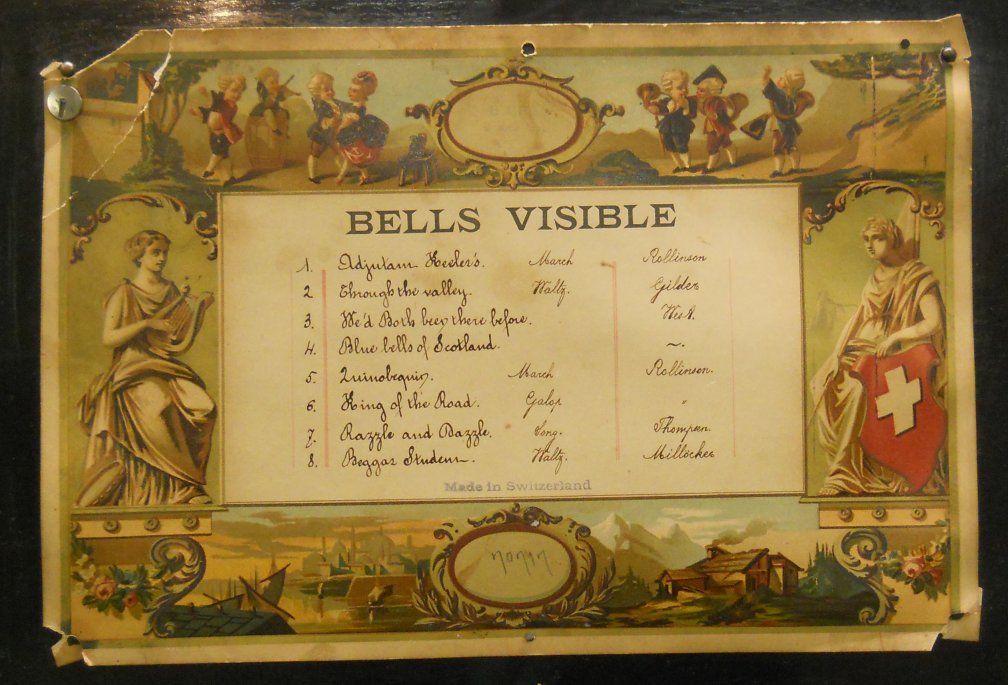 BELLS VISIBLE
1. Adjutant Keeler's. March Rollinson
2 Through the valley. Waltz. Gilder
3. We'd Both been there before. West.
4. Blue bells of Scotland. ~.
5. March Rollinson.
6. King of the Road. Galop "
7. Razzle and Dazzle. Song. Thompson.
8. Beggar Student. Waltz. Millöcker
Made in Switzerland